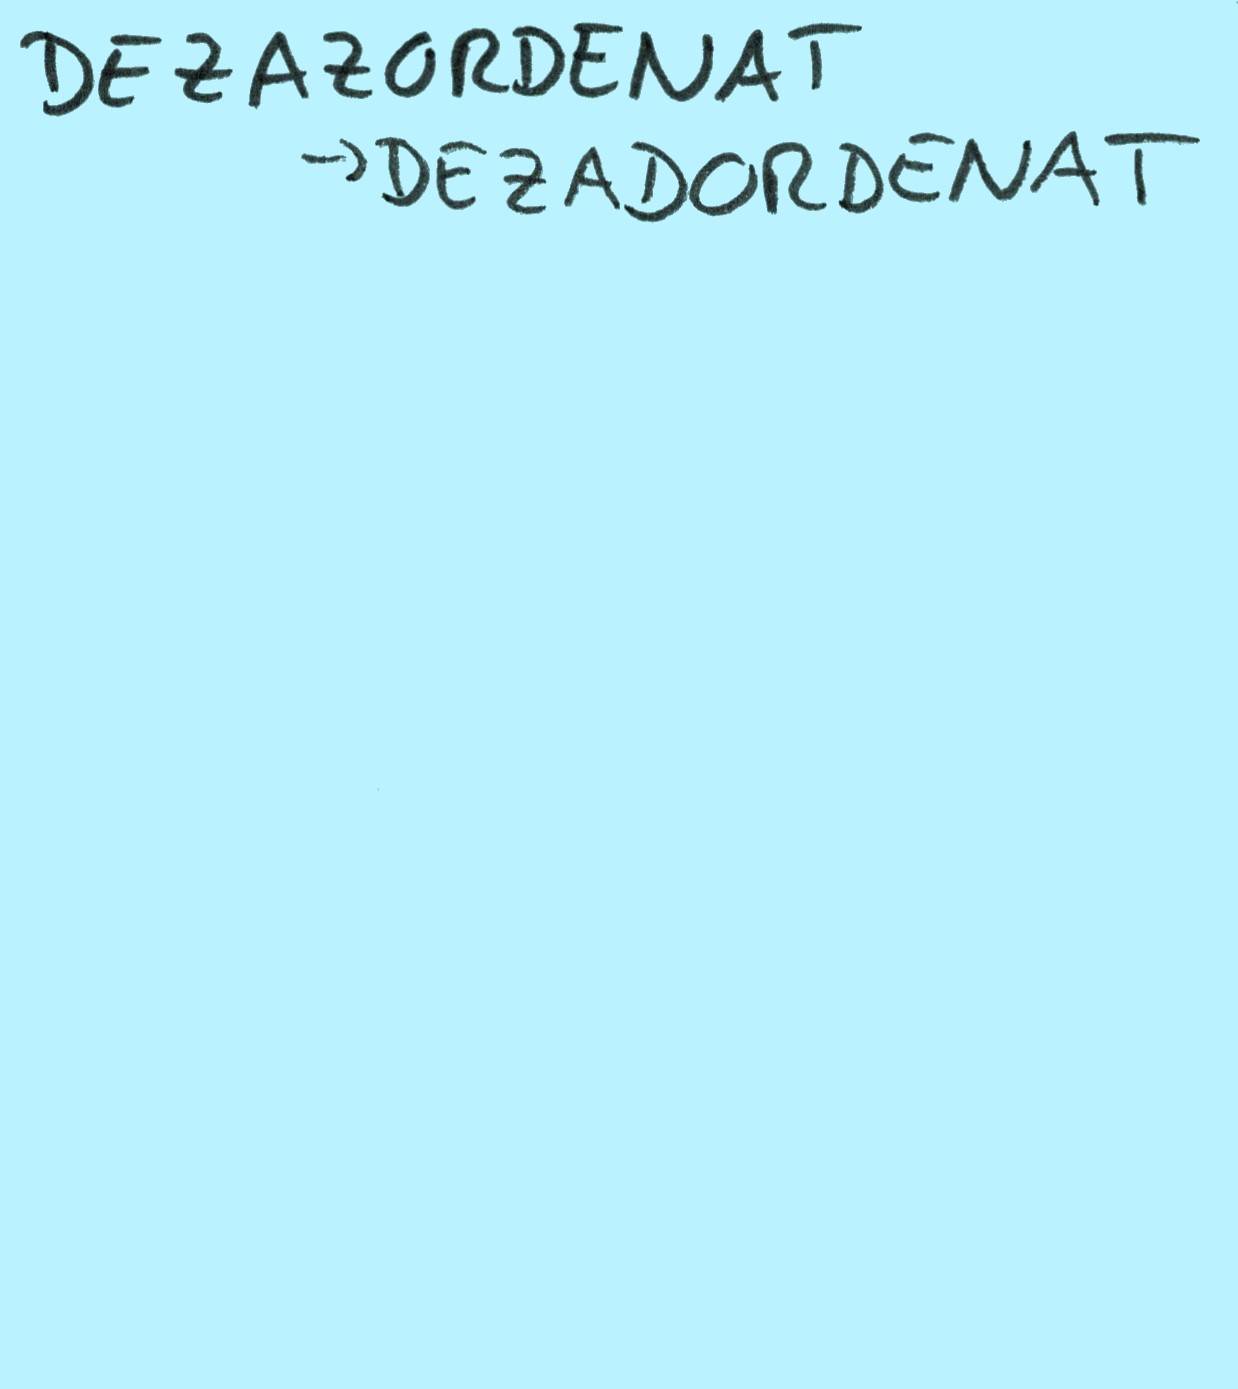 DEZAZORDENAT
→DEZADORDENAT